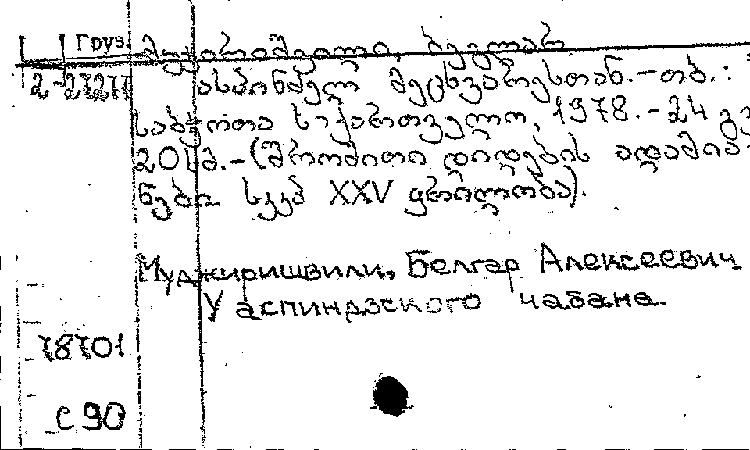 Груз. მუჯირიშვილი, ბელგარ
2-27271 ასპინძელ მეცხვარესთან.-თბ.:
საბჭოთა საქართველო, 1978.-24 გვ
20 სმ.-(შრომითი დიდების ადამია-
ნები სკკპ XXV ყრილობა).
Муджиришвили, Белгар Алексеевич
У аспиндзского чабана
78701
с 90